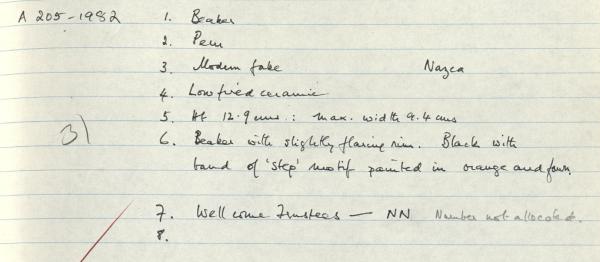 A 205-1982 1. Beaker
2. Peru
3. Modern fake Nazca
4. Low fired ceramic
5. Ht 12.9 cms : max. width 9.4 cms
31
6. Beaker with slightly flaring rim. Black with
band of 'step' motif painted in orange and fawn.
7. Wellcome Trustees — NN Number not allocated.
8.